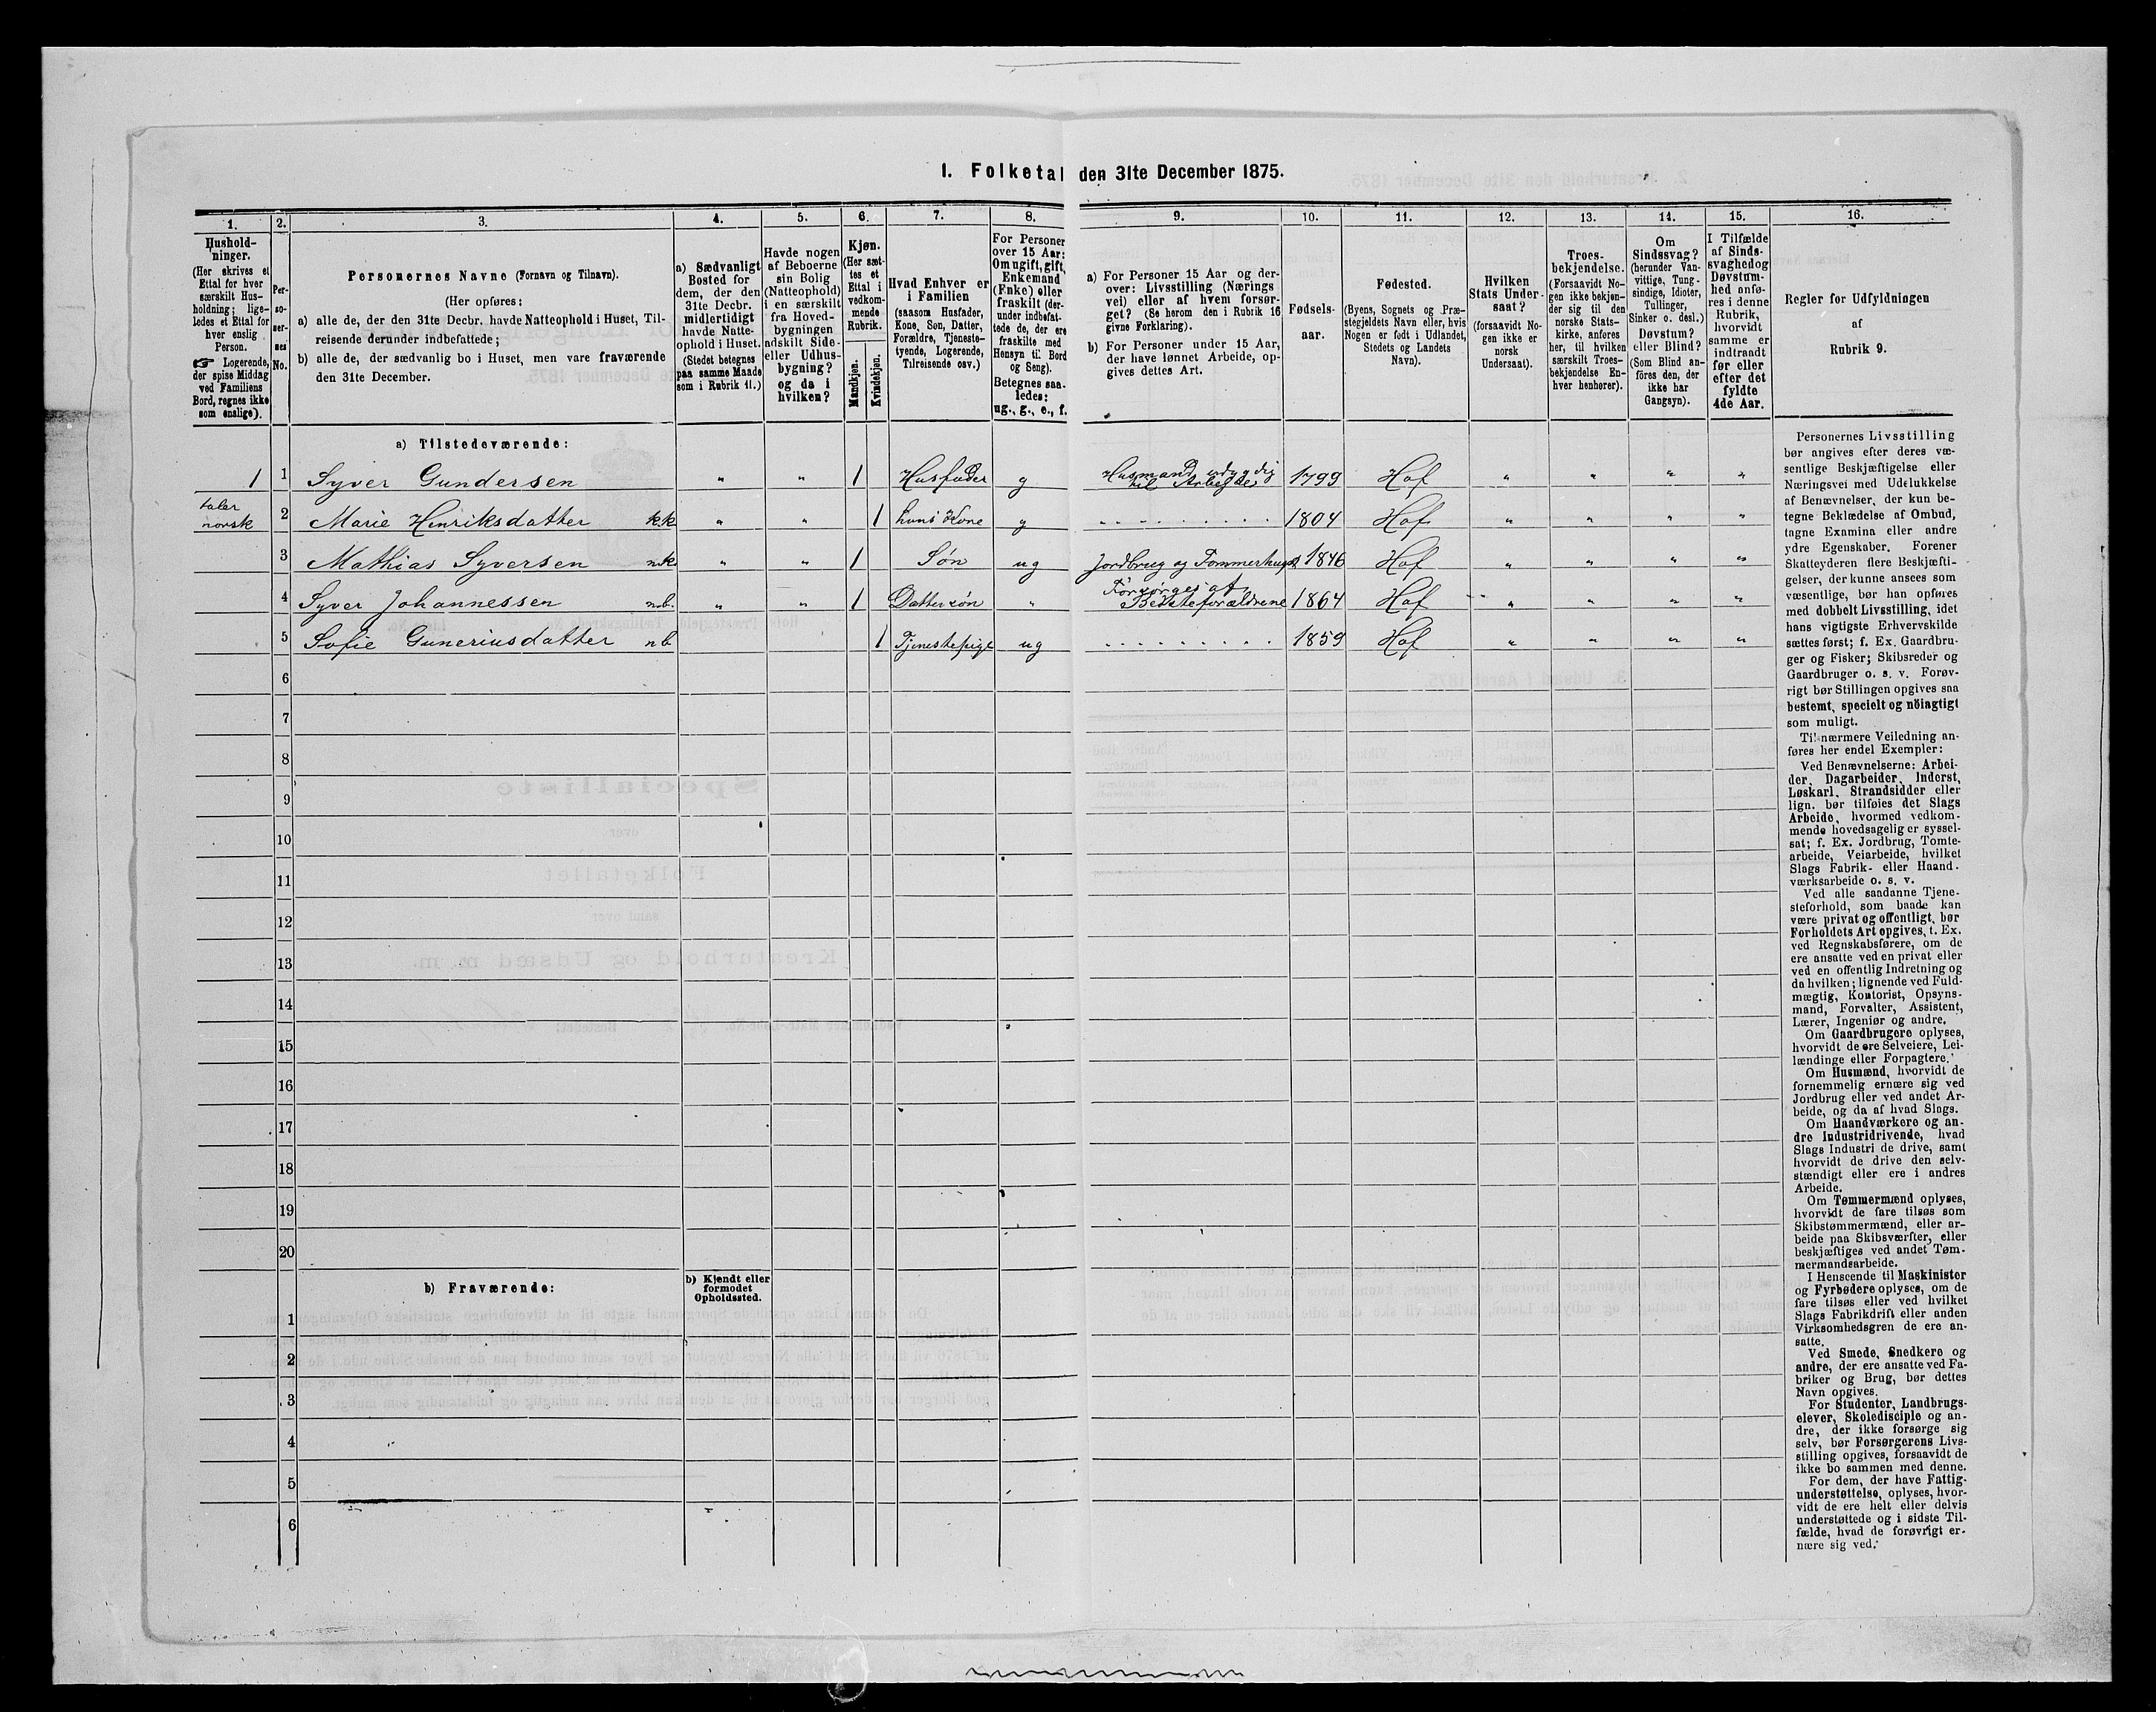 1. Folketal den 31te December 1875.
1.
2.
3.
4.
5.
6.
7.
8.
9.
10.
11.
12.
13.
14.
15.
16.
Hushold-
ninger.
(Her skrives et
Ettal for hver
særskilt Hus-
holdning; lige-
ledes et Ettal for
hver enslig
Person.
☞ Logerende,
der spise Middag
ved Familiens
Bord, regnes ikke
som enslige).
Per-
so-
ner-
nes
No.
Personernes Navne (Fornavn og Tilnavn).
(Her opføres:
a) alle de, der den 31te Decbr. havde Natteophold i Huset, Til-
reisende derunder indbefattede;
b) alle de, der sædvanlig bo i Huset, men vare fraværende
den 31te December.
a) Sædvanligt
Bosted for
dem, der den
31te Decbr.
midlertidigt
havde Natte-
ophold i Huset.
(Stedet betegnes
paa samme Maade
som i Rubrik 11.)
Havde nogen
af Beboerne
sin Bolig
(Natteophold)
i en særskilt
fra Hoved-
bygningen
adskilt Side-
eller Udhus-
bygning?
og da i
hvilken?
Kjøn.
(Her sæt-
tes et
Ettal i
vedkom-
mende
Rubrik.
Mandkjøn.
Kvindekjøn.
Hvad Enhver er
i Familien
(saasom Husfader,
Kone, Søn, Datter,
Forældre, Tjeneste-
tyende, Logerende,
Tilreisende osv.)
For Personer
over 15 Aar:
Om ugift, gift,
Enkemand
(Enke) eller
fraskilt (der-
under indbefat-
tede de, der ere
fraskilte med
Hensyn til Bord
og Seng).
Betegnes saa-
ledes:
ug., g., e., f.
a) For Personer 15 Aar og der-
over: Livsstilling (Nærings
vei) eller af hvem forsør-
get? (Se herom den i Rubrik 16
givne Forklaring).
b) For Personer under 15 Aar,
der have lønnet Arbeide, op-
gives dettes Art.
Fødsels-
aar.
Fødested.
(Byens, Sognets og Præ-
stegjeldets Navn eller, hvis
Nogen er født i Udlandet,
Stedets og Landets
Navn).
Hvilken
Stats Under-
saat?
(forsaavidt No-
gen ikke er
norsk
Undersaat).
Troes-
bekjendelse.
(Forsaavidt No-
gen ikke bekjen-
der sig til den
norske Stats-
kirke, anføres
her, til hvilken
særskilt Troes-
bekjendelse En-
hver henhører).
Om
Sindssvag?
(herunder Van-
vittige, Tung-
sindige, Idioter,
Tullinger,
Sinker o. desl.)
Døvstum?
eller Blind?
(Som Blind an-
føres den, der
ikke har
Gangsyn).
I Tilfælde
af Sinds-
svaghed og
Døvstum-
hed anfø-
res i denne
Rubrik,
hvorvidt
samme er
indtraadt
før eller
efter det
fyldte
4de Aar.
Regler for Udfyldningen
af
Rubrik 9.
a) Tilstedeværende:
1 1 Syver Gundersen " " 1 Husfader g Husmand udygdig til Arbeide 1799 Hof " " " "
taler norsk 2 Marie Henriksdatter k.k " " 1 hans Kone g " 1804 Hof " " " "
3 Mathias Syversen n.k. " " 1 Søn ug Jordbrug og Tømmerhugst 1846 Hof " " " "
4 Syver Johannessen n.b. " " 1 Dattersøn " Forsørges af Bedsteforældrene 1864 Hof " " " "
5 Sofie Guneriusdatter n.b 1 Tjenestepige ug " 1859 Hof " " " "
6
7
8
9
10
11
12
13
14
15
16
17
18
19
20
b) Fraværende:
b) Kjendt eller
formodet
Opholdssted.
1
2
3
4
5
6
Personernes Livsstilling
bør angives efter deres væ-
sentlige Beskjæftigelse eller
Næringsvei med Udelukkelse
af Benævnelser, der kun be-
tegne Beklædelse af Ombud,
tagne Examina eller andre
ydre Egenskaber. Forener
Skatteyderen flere Beskjæfti-
gelser, der kunne ansees som
væsentlige, bør han opføres
med dobbelt Livsstilling, idet
hans vigtigste Erhvervskilde
sættes først; f. Ex. Gaardbru-
ger og Fisker; Skibsreder og
Gaardbruger o. s. v. Forøv-
rigt bør Stillingen opgives saa
bestemt, specielt og nöiagtigt
som muligt.
Til nærmere Veiledning an-
føres her endel Exempler:
Ved Benævnelserne: Arbei-
der, Dagarbeider, Inderst,
Løskarl, Strandsidder eller
lign. bør tilføies det Slags
Arbeide, hvormed vedkom-
mende hovedsagelig er syssel-
sat; f. Ex. Jordbrug, Tomte-
arbeide, Veiarbeide, hvilket
Slags Fabrik- eller Haand-
værksarbeide o. s. v.
Ved alle saadanne Tjene-
steforhold, som baade kan
være privat og offentligt, bør
Forholdets Art opgives, t. Ex.
ved Regnskabsførere, om de
ere ansatte ved en privat eller
ved en offentlig Indretning og
da hvilken; lignende ved Fuld-
mægtig, Kontorist, Opsyns-
mand, Forvalter, Assistent,
Lærer, Ingeniør og andre.
Om Gaardbrugere oplyses,
hvorvidt de ere Selveiere, Lei-
lændinge eller Forpagtere.
Om Husmænd, hvorvidt de
fornemmelig ernære sig ved
Jordbrug eller ved andet Ar-
beide, og da af hvad Slags.
Om Haandværkere og an-
dre Industridrivende, hvad
Slags Industri de drive, samt
hvorvidt de drive den selv-
stændigt eller ere i andres
Arbeide.
Om Tømmermænd oplyses,
hvorvidt de fare tilsøs som
Skibstømmermænd, eller ar-
beide paa Skibsværfter, eller
beskjæftiges ved andet Tøm-
mermandsarbeide.
I Henseende til Maskinister
og Fyrbødere oplyses, om de
fare tilsøs eller ved hvilket
Slags Fabrikdrift eller anden
Virksomhedsgren de ere an-
satte.
Ved Smede, Snedkere og
andre, der ere ansatte ved Fa-
briker og Brug, bør dettes
Navn opgives.
For Studenter, Landbrugs-
elever, Skoledisciple og an-
dre, der ikke forsørge sig
selv, bør Forsørgerens Livs-
stilling opgives, forsaavidt de
ikke bo sammen med denne.
For dem, der have Fattig-
understøttelse, oplyses, hvor-
vidt de ere helt eller delvis
understøttede og i sidste Til-
fælde, hvad de forøvrigt er-
nære sig ved.